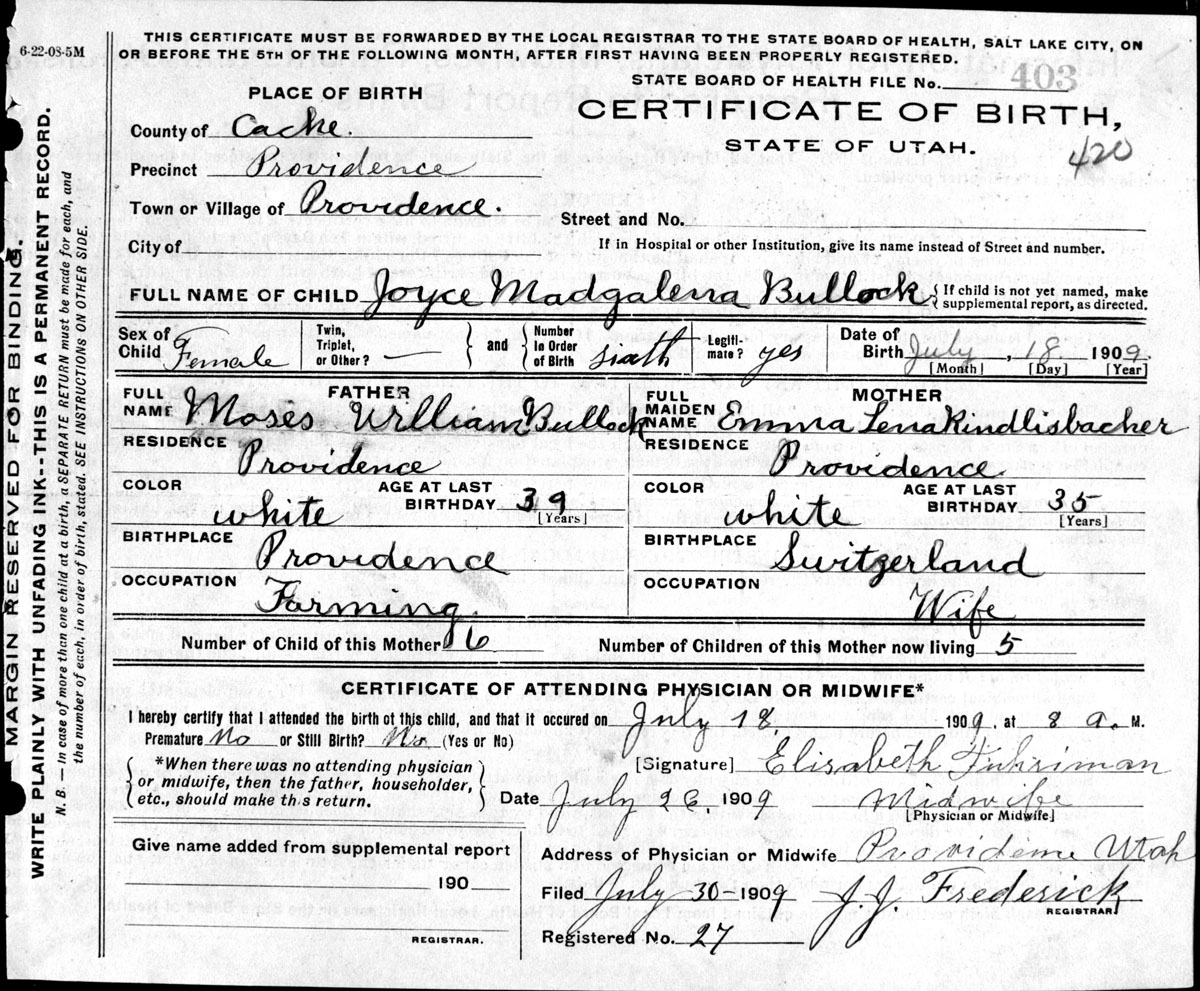 6-22-08-5M
THIS CERTIFICATE MUST BE FORWARDED BY THE LOCAL REGISTRAR TO THE STATE BOARD OF HEALTH, SALT LAKE CITY, ON
OR BEFORE THE 5TH OF THE FOLLOWING MONTH, AFTER FIRST HAVING BEEN PROPERLY REGISTERED.
STATE BOARD OF HEALTH FILE No. 403
PLACE OF BIRTH
CERTIFICATE OF BIRTH,
STATE OF UTAH.
420
County of Cache.
Precinct Providence
Town or Village of Providence.
Street and No.
City of
If in Hospital or other Institution, give its name instead of Street and number.
FULL NAME OF CHILD Joyce Madgalena Bullock { If child is not yet named, make
supplemental report, as directed.
Sex of Child Female
Twin, Triplet, or Other? —
} and {
Number in Order of Birth sixth
Legiti-mate? yes
Date of Birth July, 18 1909.
[Month] [Day] [Year]
FATHER
FULL NAME Moses William Bullock
MOTHER
FULL MAIDEN NAME Emma Lena Kindlisbacher
RESIDENCE Providence
RESIDENCE Providence
COLOR white AGE AT LAST BIRTHDAY 39 [Years]
COLOR white AGE AT LAST BIRTHDAY 35 [Years]
BIRTHPLACE Providence
BIRTHPLACE Switzerland
OCCUPATION Farming.
OCCUPATION Wife
Number of Child of this Mother 6 Number of Children of this Mother now living 5
CERTIFICATE OF ATTENDING PHYSICIAN OR MIDWIFE*
I hereby certify that I attended the birth of this child, and that it occured on July 18, 1909, at 8 a. M.
Premature No or Still Birth? No (Yes or No)
*When there was no attending physician
or midwife, then the father, householder,
etc., should make this return.
[Signature] Elisabeth Fuhriman
Date July 26, 1909 Midwife
[Physician or Midwife]
Give name added from supplemental report
190
REGISTRAR.
Address of Physician or Midwife Providence Utah
Filed July 30-1909 J.J. Frederick
REGISTRAR.
Registered No. 27
MARGIN RESERVED FOR BINDING.
WRITE PLAINLY WITH UNFADING INK--THIS IS A PERMANENT RECORD.
N. B. — In case of more than one child at a birth, a SEPARATE RETURN must be made for each, and
the number of each, in order of birth, stated. SEE INSTRUCTIONS ON OTHER SIDE.